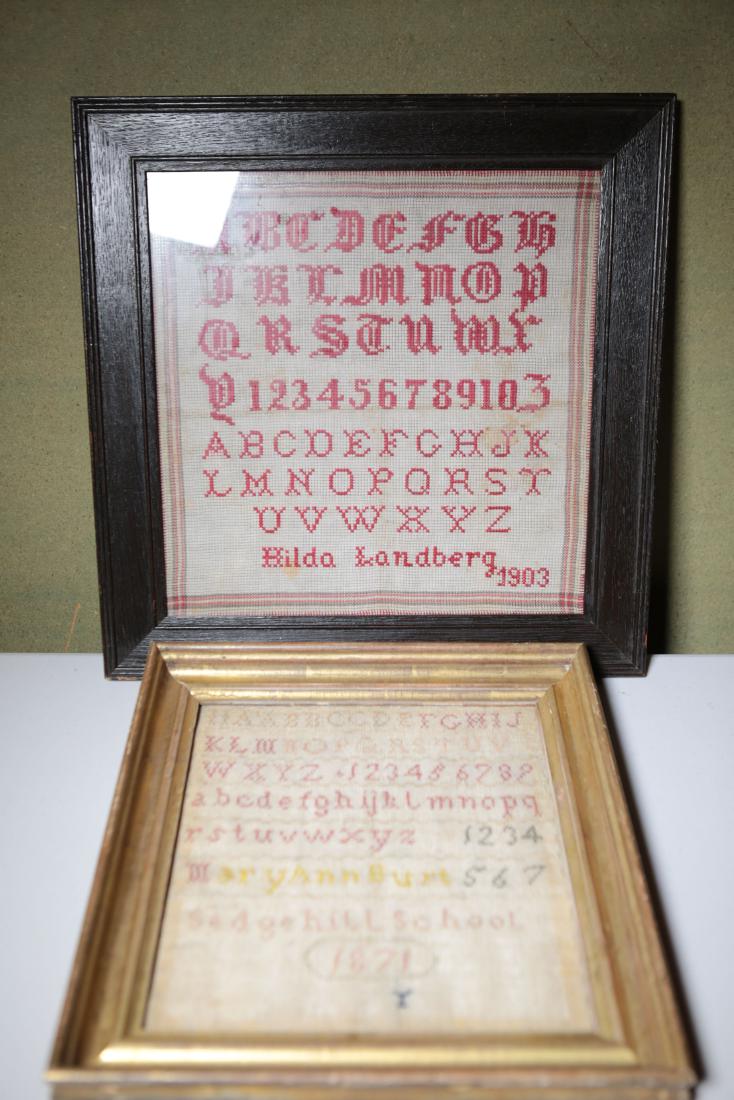 ABCDEFGH
IKLMNOP
QRSTUWX
Y12345678910Z
ABCDEFGHJK
LMNOPQRST
UVWXYZ
Hilda Landberg
1903
KLMNOPQRSTUV
WXYZ 123456789
abcdefghijklmnopq
rstuvwxyz 1234
Mary Ann Burt 567
Sedgehill School
1871